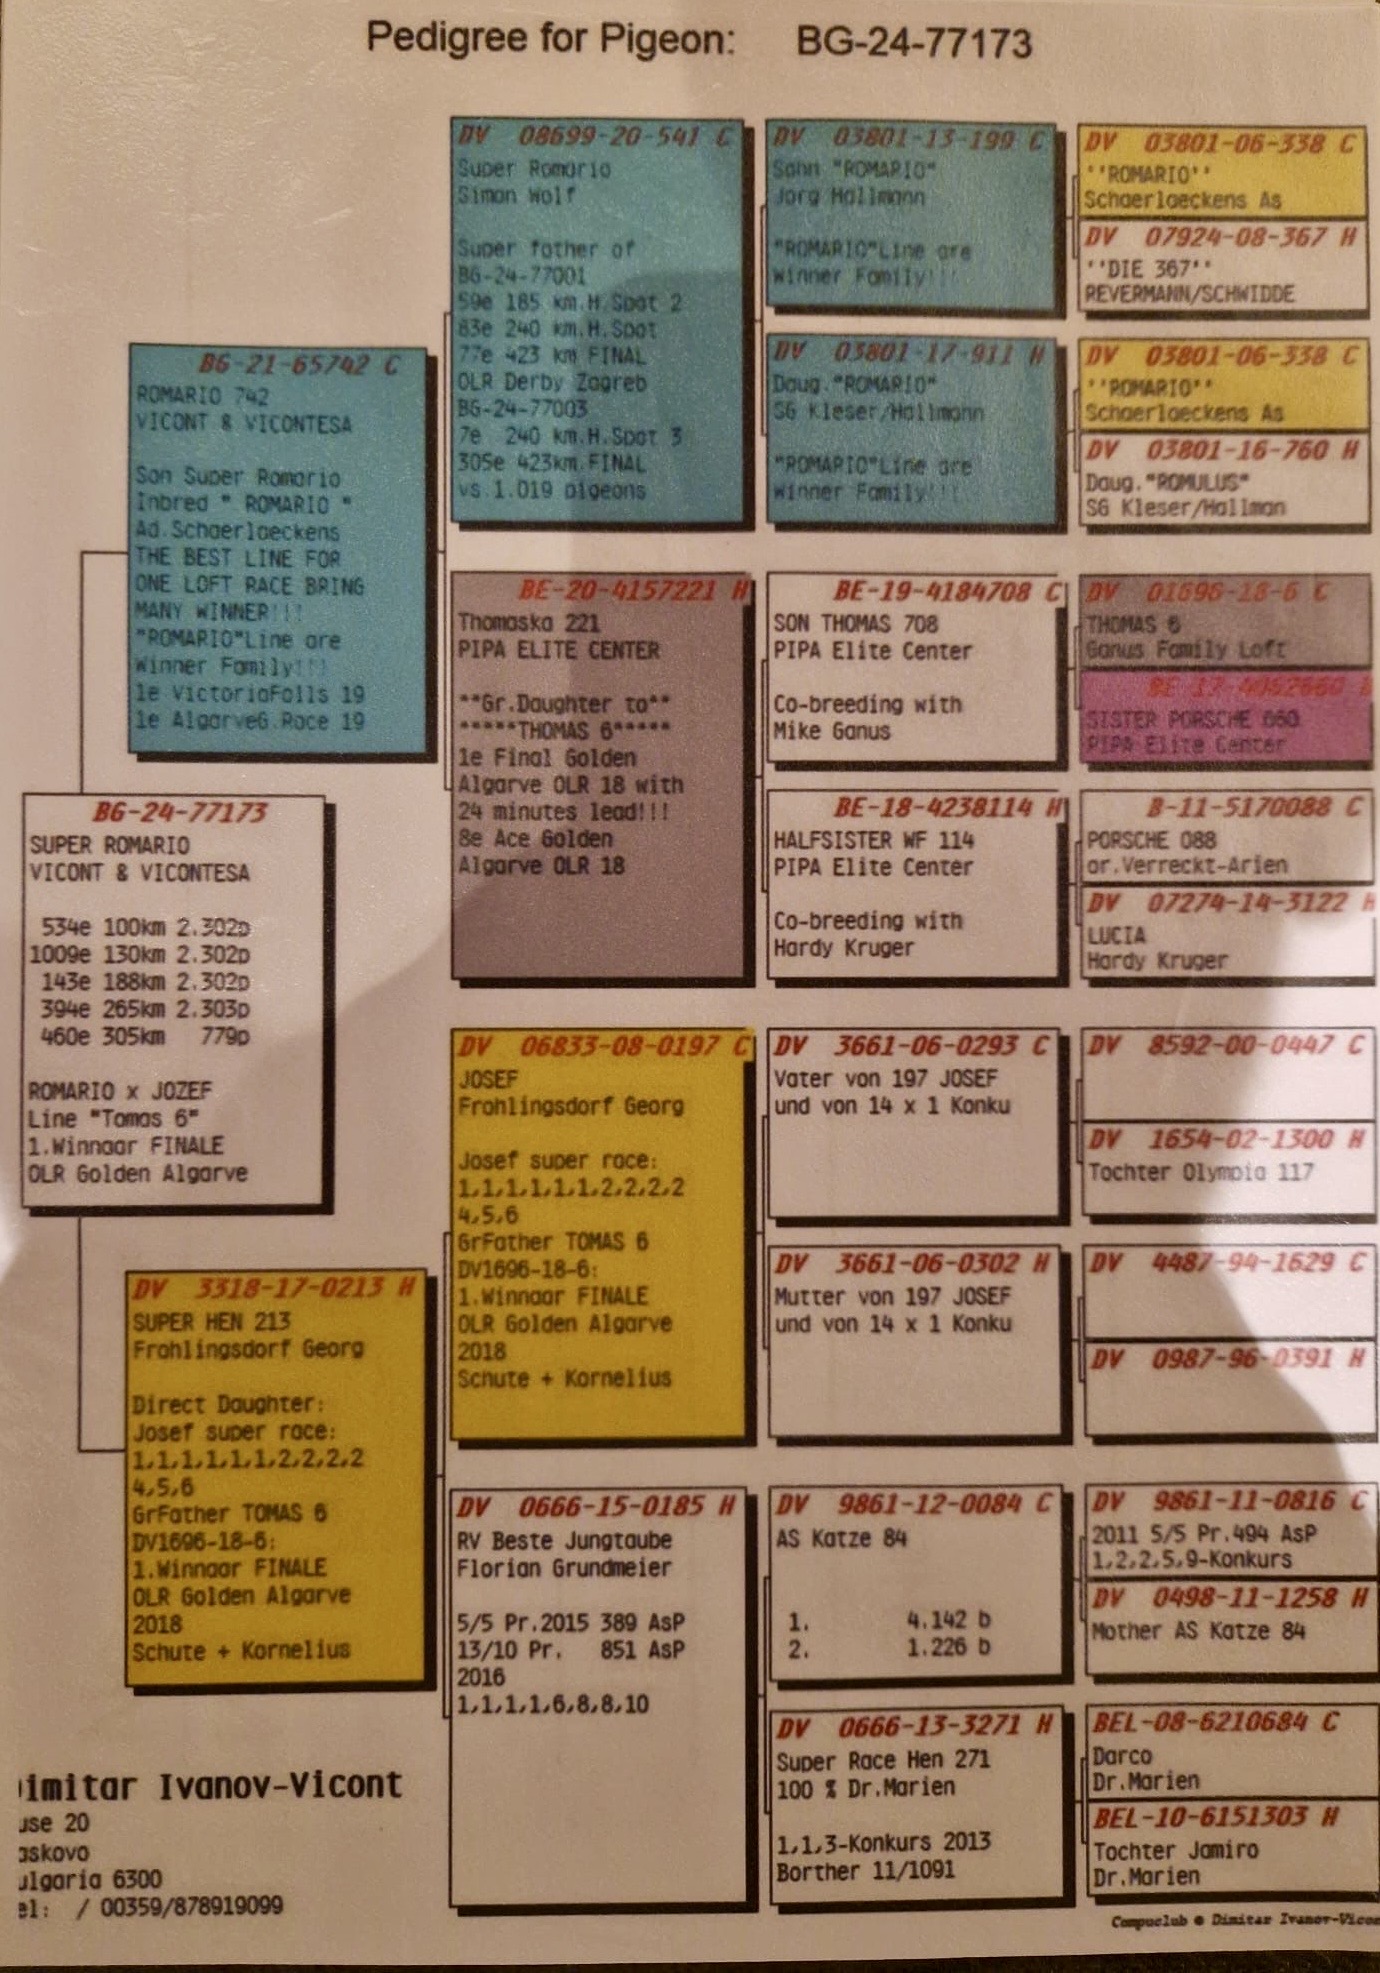 Pedigree for Pigeon: BG-24-77173
BG-24-77173
SUPER ROMARIO
VICONT & VICONTESA
534e 100km 2.302p
1009e 130km 2.302p
143e 188km 2.302p
394e 265km 2.303p
460e 305km 779p
ROMARIO x JOZEF
Line "Tomas 6"
1.Winnaar FINALE
OLR Golden Algarve
BG-21-65742 C
ROMARIO 742
VICONT & VICONTESA
Son Super Romario
Inbred " ROMARIO "
Ad.Schaerlaeckens
THE BEST LINE FOR
ONE LOFT RACE BRING
MANY WINNER!!!
"ROMARIO"Line are
Winner Family!!!
1e VictoriaFalls 19
1e AlgarveG.Race 19
DV 3318-17-0213 H
SUPER HEN 213
Frohlingsdorf Georg
Direct Daughter:
Josef super race:
1,1,1,1,1,1,2,2,2,2
4,5,6
GrFather TOMAS 6
DV1696-18-6:
1.Winnaar FINALE
OLR Golden Algarve
2018
Schute + Kornelius
DV 08699-20-541 C
Super Romario
Simon Wolf
Super father of
BG-24-77001
59e 185 km.H.Spot 2
83e 240 km.H.Spot
77e 423 km FINAL
OLR Derby Zagreb
BG-24-77003
7e 240 km.H.Spot 3
305e 423km.FINAL
vs.1.019 pigeons
BE-20-4157221 H
Thomaska 221
PIPA ELITE CENTER
**Gr.Daughter to**
*****THOMAS 6*****
1e Final Golden
Algarve OLR 18 with
24 minutes lead!!!
8e Ace Golden
Algarve OLR 18
DV 06833-08-0197 C
JOSEF
Frohlingsdorf Georg
Josef super race:
1,1,1,1,1,1,2,2,2,2
4,5,6
GrFather TOMAS 6
DV1696-18-6:
1.Winnaar FINALE
OLR Golden Algarve
2018
Schute + Kornelius
DV 0666-15-0185 H
RV Beste Jungtaube
Florian Grundmeier
5/5 Pr.2015 389 AsP
13/10 Pr. 851 AsP
2016
1,1,1,1,6,8,8,10
DV 03801-13-199 C
Sohn "ROMARIO"
Jorg Hallmann
"ROMARIO"Line are
Winner Family!!!
DV 03801-17-911 H
Daug."ROMARIO"
SG Kleser/Hallmann
"ROMARIO"Line are
Winner Family!!!
BE-19-4184708 C
SON THOMAS 708
PIPA Elite Center
Co-breeding with
Mike Ganus
BE-18-4238114 H
HALFSISTER WF 114
PIPA Elite Center
Co-breeding with
Hardy Kruger
DV 3661-06-0293 C
Vater von 197 JOSEF
und von 14 x 1 Konku
DV 3661-06-0302 H
Mutter von 197 JOSEF
und von 14 x 1 Konku
DV 9861-12-0084 C
AS Katze 84
1. 4.142 b
2. 1.226 b
DV 0666-13-3271 H
Super Race Hen 271
100 % Dr.Marien
1,1,3-Konkurs 2013
Borther 11/1091
DV 03801-06-338 C
''ROMARIO''
Schaerlaeckens As
DV 07924-08-367 H
''DIE 367''
REVERMANN/SCHWIDDE
DV 03801-06-338 C
''ROMARIO''
Schaerlaeckens As
DV 03801-16-760 H
Daug."ROMULUS"
SG Kleser/Hallman
DV 01696-18-6 C
THOMAS 6
Ganus Family Loft
BE-17-4062660
SISTER PORSCHE 660
PIPA Elite Center
B-11-5170088 C
PORSCHE 088
or.Verreckt-Arien
DV 07274-14-3122 H
LUCIA
Hardy Kruger
DV 8592-00-0447 C
DV 1654-02-1300 H
Tochter Olympia 117
DV 4487-94-1629 C
DV 0987-96-0391 H
DV 9861-11-0816 C
2011 5/5 Pr.494 AsP
1,2,2,5,9-Konkurs
DV 0498-11-1258 H
Mother AS Katze 84
BEL-08-6210684 C
Darco
Dr.Marien
BEL-10-6151303 H
Tochter Jamiro
Dr.Marien
imitar Ivanov-Vicont
use 20
askovo
ulgaria 6300
el: / 00359/878919099
Compuclub © Dimitar Ivanov-Vicon